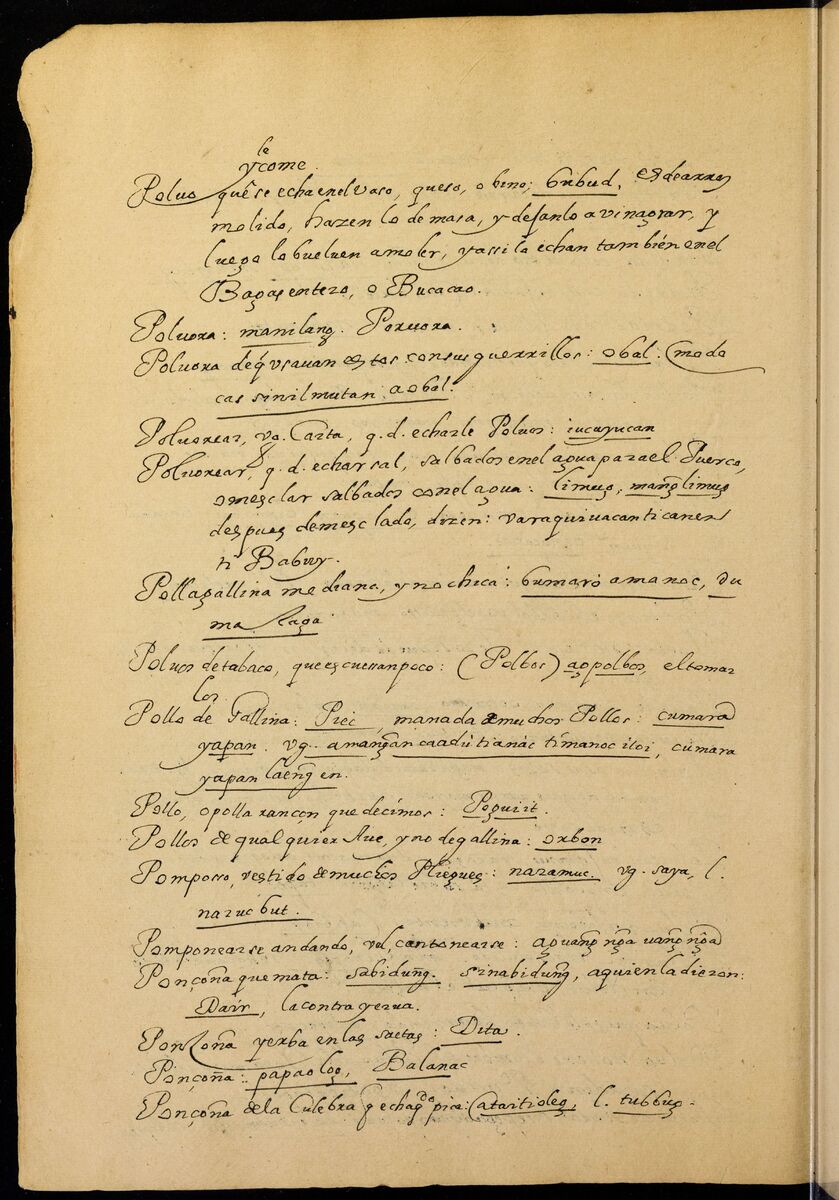 le
y come
Poluo que se echa en el vaso, queso, o bino; búbud, es de arros
molido, hazenlo de masa, y dejanlo avinagrar, y
luego lo bueluen amoler, y assi la echan también en el
Bagas entero, o Bucacao.
Poluora: manilang. Poruora.
Poluora de q̃ vsauan estos con sus guerrillos: obal. (modo
cas sinilmutan aobal.
Poluorear, vg. Carta, q. d. echarle Poluos: iucayucan
Poluorear, q. d. echar sal, salbados en el agua para el Puerco,
o mesclar salbados con el agua: limug, mang̃limug
despues de mesclado, dizen: varaquiuacanticanen
ti Babuy.
Polla gallina mediana, y no chica: bumaró amanoc, du
malaga
Poluos de tabaco, que es cuesanpoco: (Polbos) agpolbos, el tomar
los.
Pollo de Gallina: Piec, manada de muchos Pollos: cumara
yapan. vg. amang̃an caadùtianac tímanoc iloi, cumara
yapan laeng̃ en.
Pollo, o polla rançon que decimos: Poguiit.
Pollos de qualquier Aue, y no de gallina: orbon
Pomposo, vestido de muchos Pliegues: naramuc. vg. saya, l.
narucbut.
Pomponearse andando, vel, cantonearse: aguang̃ ng̃a uang̃ ng̃a
Ponçoña que mata: sabidung̃. sinabidung̃, a quien la dieron:
Dair, la contra yerua.
Ponzoña yerba en las saetas: Dita.
Ponçoña: papaolog, Balanac
Ponçoña de la Culebra q̃ echa q̃do pica: ataitioleg, l. tubbug.